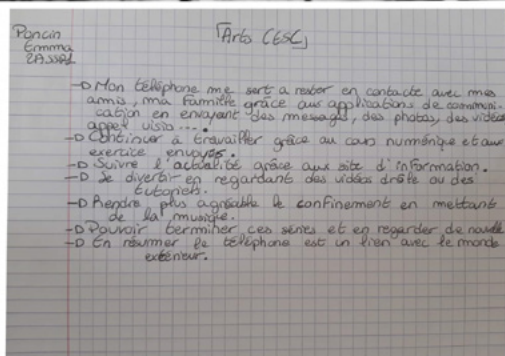 Poncin
Emma
2ASSP1
Arts (ESC)
→ Mon téléphone me sert a rester en contacte avec mes
amis, ma famille grâce aux applications de communi-
cation en envoyant des messages, des photos, des vidéos
appel visio....
→ Continuer à travailler grâce au cours numérique et aux
exercice envoyés.
→ Suivre l'actualité grâce aux site d'information.
→ Se divertir en regardant des vidéos drôle ou des
tutoriels.
→ Rendre plus agréable le confinement en mettant
de la musique.
→ Pouvoir terminer ces séries et en regarder de nouvelle
→ En résumer le téléphone est un lien avec le monde
extérieur.